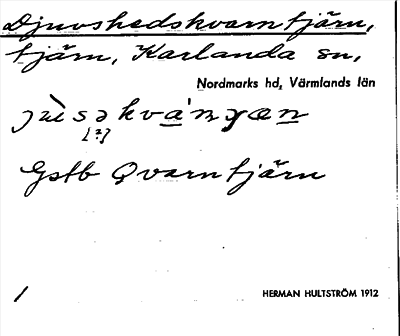 Djuvshedskvarntjärn,
tjärn, Karlanda sn,
Nordmarks hd, Värmlands län
[?]
Gstb Qvarntjärn
/
HERMAN HULTSTRÖM 1912